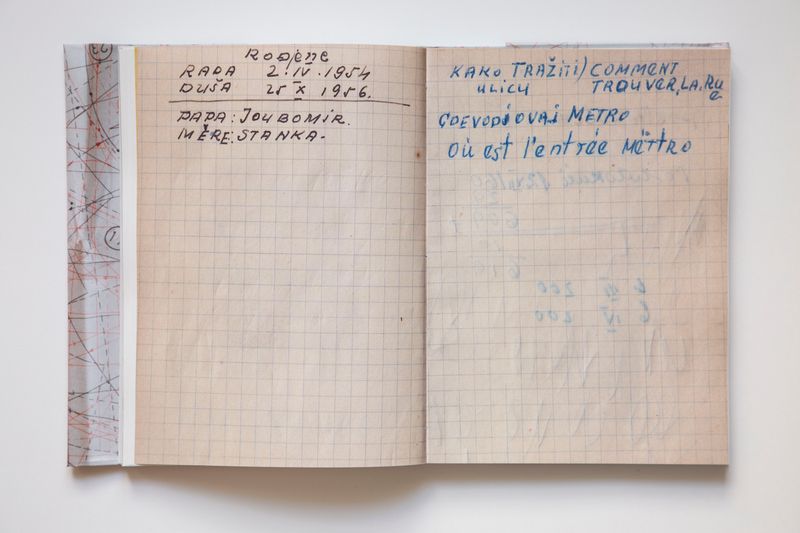 Rodjene
RADA 2.IV.1954
DUŠA 25 X 1956.
PAPA: JOUBOMIR.
MĚRE: STANKA-
KAKO TRAŽITI) COMMENT
ULICU TROUVER, LA. Rue
GDEVODI OVAJ METRO
Où est l'entrée METTRO
4 III 200
6 IV 200